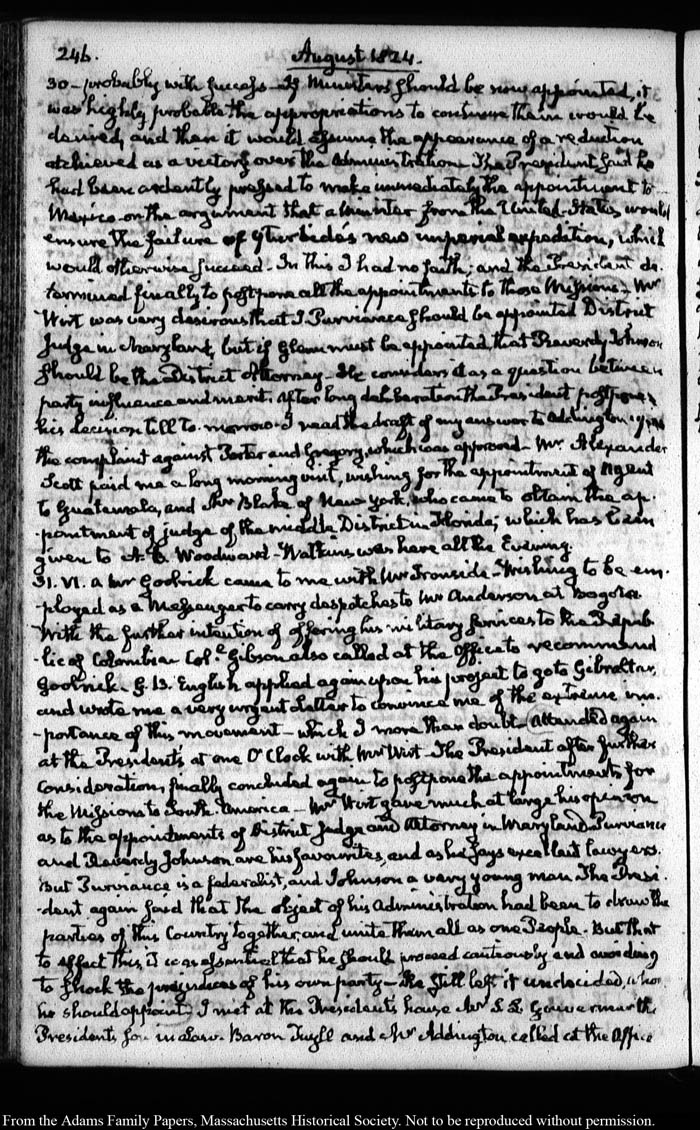 246.
August 1824.
30 - probably with success - If Ministers should be now appointed, it
was highly probable the appropriations to continue them would be
denied, and then it would assume the appearance of a reduction
atchieved as a victory over the Administration. The President said he
had been ardently pressed to make immediately the appointment to
Mexico - on the argument that a Minister from the United States, would
ensure the failure of Yturbide's new imperial expedition, which
would otherwise succeed - In this I had no faith; and the President de-
termined finally to postpone all the appointments to those Missions - Mr
Wirt was very desirous that I. Purviance should be appointed District
Judge in Maryland, but if Glenn must be appointed, that Reverdy Johnson
should be the District Attorney - He considers it as a question between
party influence and merit. After long deliberation the President postpones
his decision till to-morrow. I read the draft of my answer to Addington upon
the complaint against Porter and Gregory, which was approved - Mr Alexander
Scott paid me a long morning visit, wishing for the appointment of Agent
to Guatemala, and Mr Blake of New York, who came to obtain the ap-
-pointment of judge of the middle District in Florida; which has been
given to A. B. Woodward - Watkins was here all the Evening.
31. VI. a Mr Goolrick came to me with Mr Ironside - Wishing to be em-
-ployed as a Messenger to carry despatches to Mr Anderson at Bogota
With the further intention of offering his military services to the Repub-
-lic of Colombia. Col.l Gibson also called at the Office to recommend
Goolrick - G. B. English applied again upon his project to go to Gibraltar,
and wrote me a very urgent Letter to convince me of the extreme im-
-portance of this movement - which I more than doubt - Attended again
at the President's at one O'Clock with Mr Wirt - The President after further
consideration, finally concluded again to postpone the appointments for
the Missions to South-America - Mr Wirt gave much at large his opinion
as to the appointments of District Judge and Attorney in Maryland. Purviance
and Reverdy Johnson are his favourites, and as he says excellent lawyers.
But Purviance is a federalist, and Johnson a very young man. The Presi-
-dent again said that the object of his Administration had been to draw the
parties of this Country together, and unite them all as one People. But that
to effect this, it was essential that he should proceed cautiously and avoiding
to shock the prejudices of his own party - He still left it undecided, whom
he should appoint. I met at the President's house Mr S. L. Gouverneur the
Presidents son in Law. Baron Tuyll and Mr Addington called at the Office
From the Adams Family Papers, Massachusetts Historical Society. Not to be reproduced without permission.